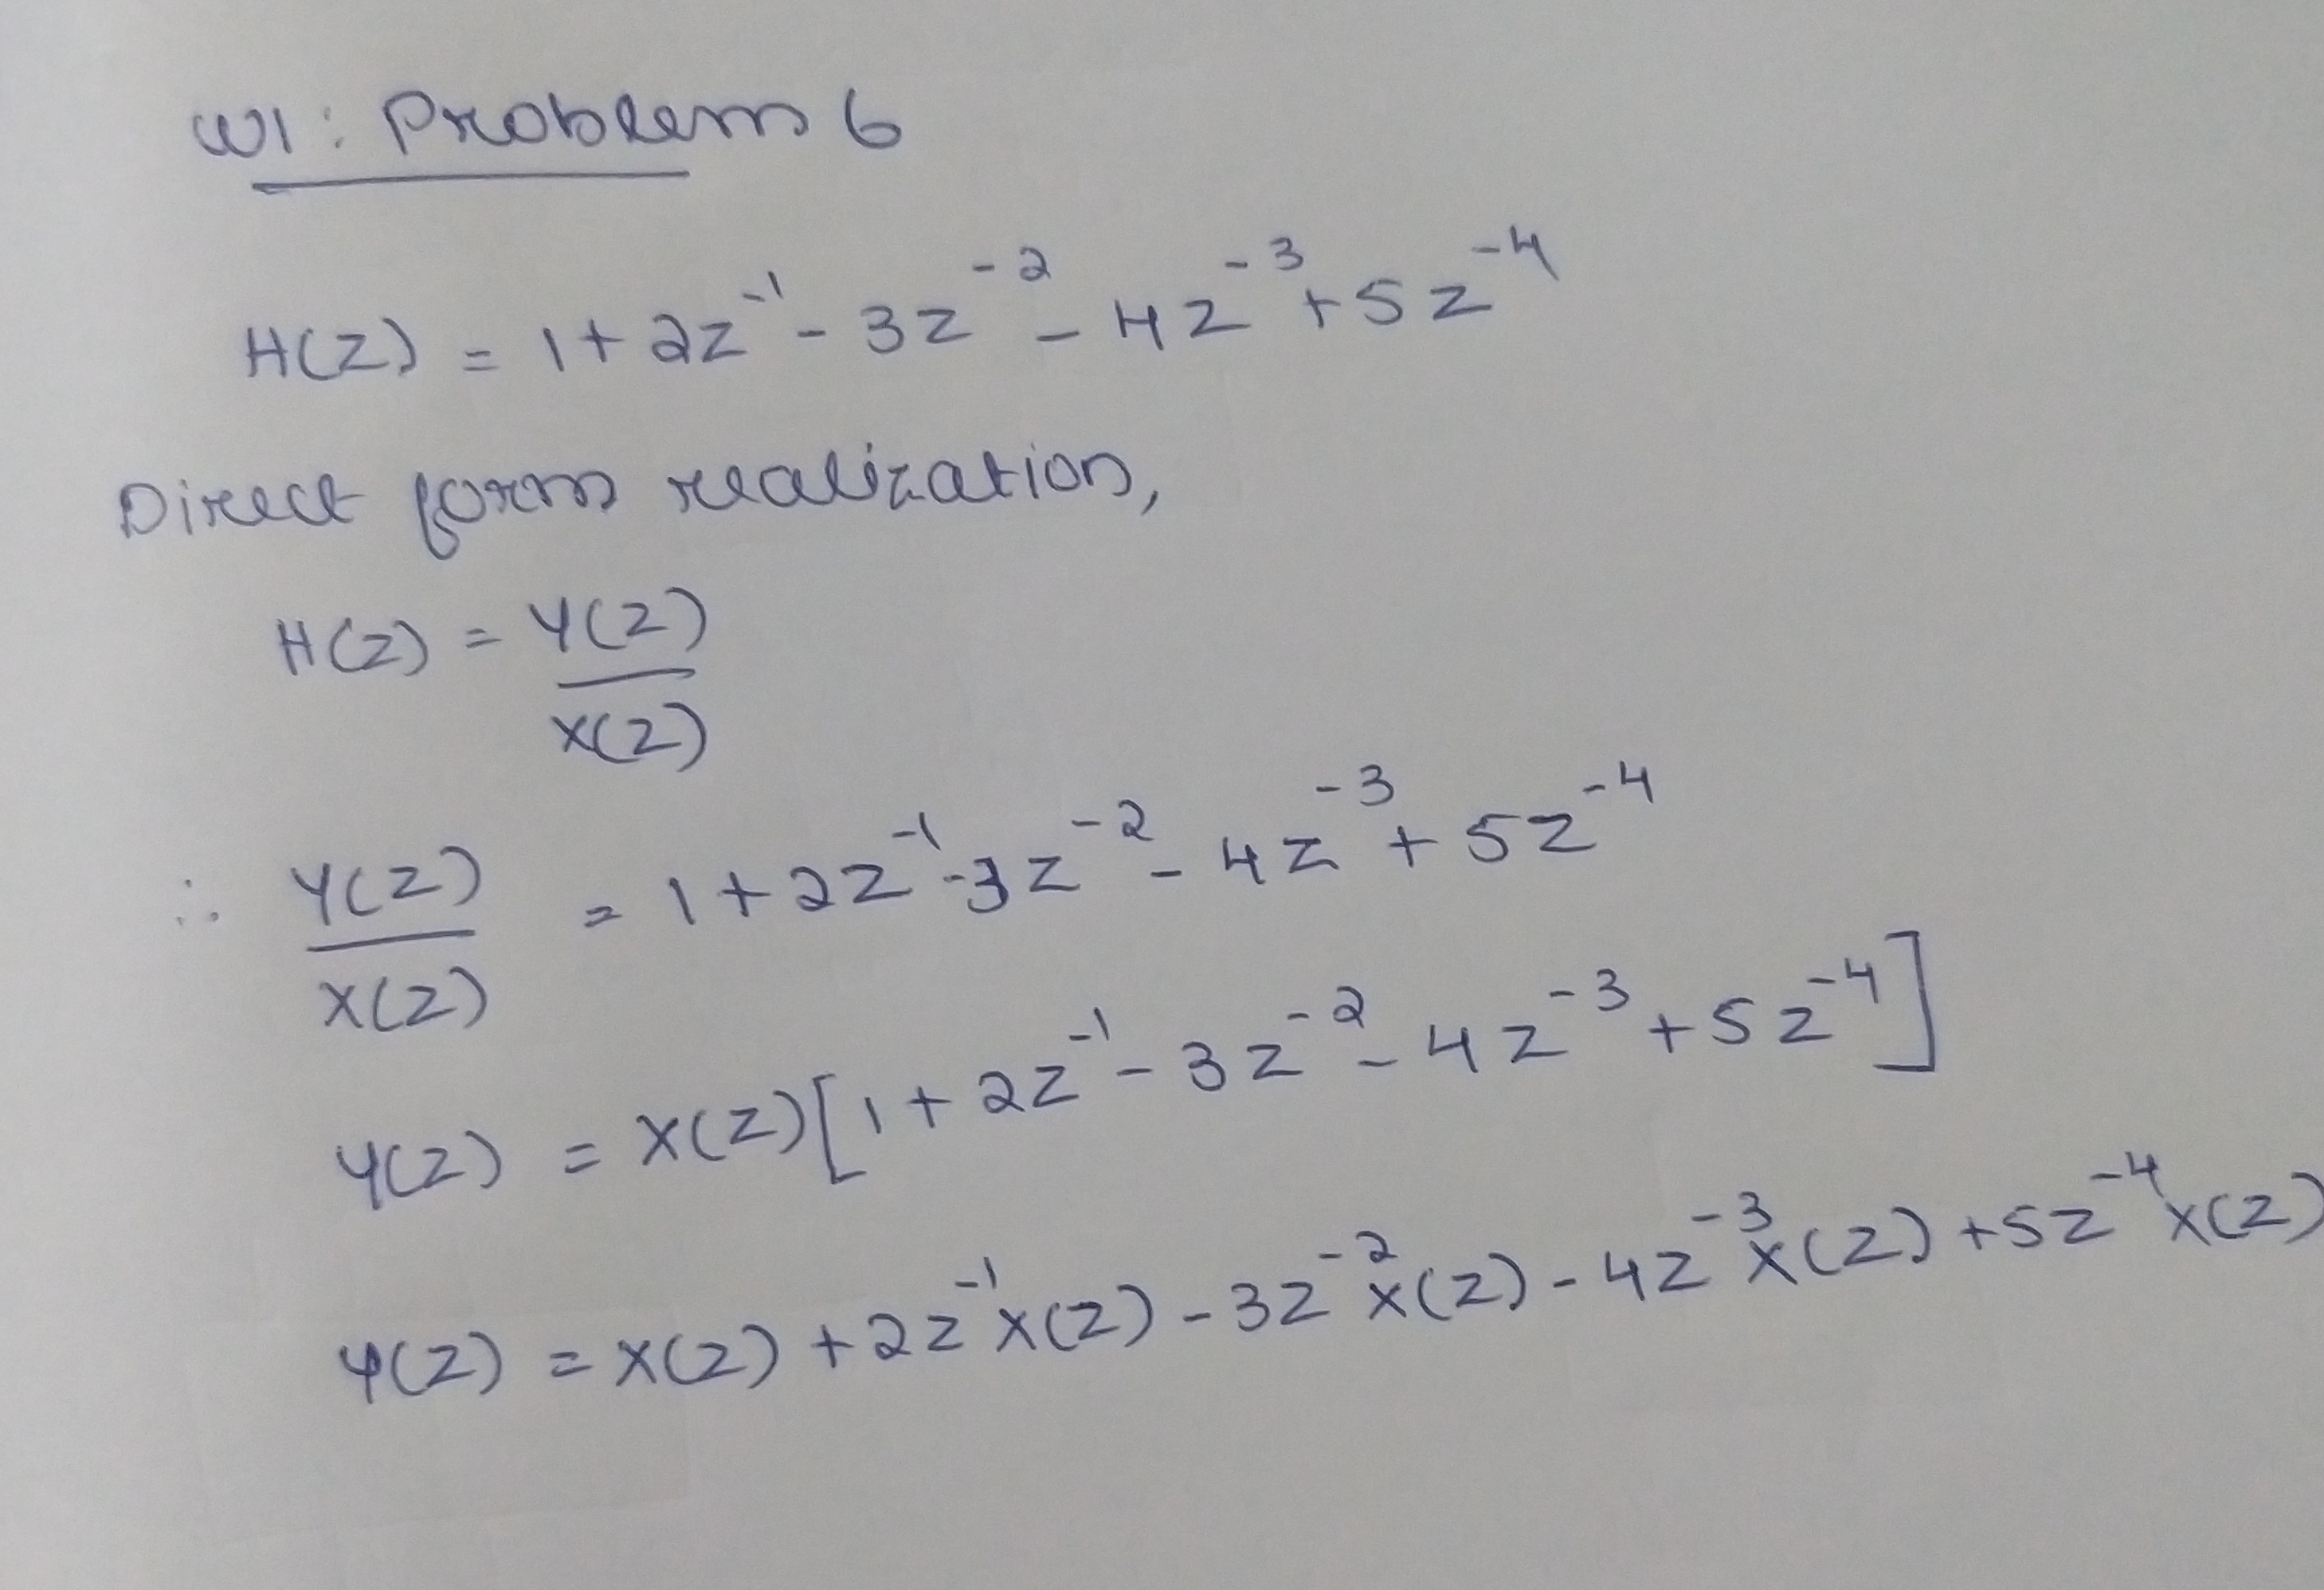 W1: Problem 6
H(Z) = 1 + 2z⁻¹ - 3z⁻² - 4z⁻³ + 5z⁻⁴
Direct form realization,
H(z) = Y(z)
X(z)
∴ Y(z) = 1 + 2z⁻¹ - 3z⁻² - 4z⁻³ + 5z⁻⁴
X(z)
Y(z) = X(z)[1 + 2z⁻¹ - 3z⁻² - 4z⁻³ + 5z⁻⁴]
Y(z) = X(z) + 2z⁻¹X(z) - 3z⁻²X(z) - 4z⁻³X(z) + 5z⁻⁴X(z)